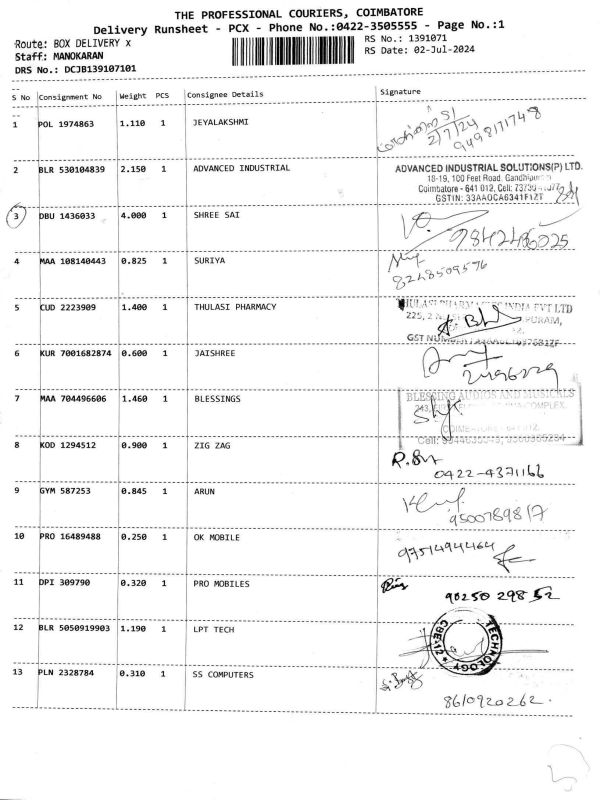 THE PROFESSIONAL COURIERS, COIMBATORE
Delivery Runsheet - PCX - Phone No.:0422-3505555 - Page No.:1
Route: BOX DELIVERY x
RS No.: 1391071
Staff: MANOKARAN
RS Date: 02-Jul-2024
DRS No.: DCJB139107101
S No Consignment No Weight PCS Consignee Details Signature
1 POL 1974863 1.110 1 JEYALAKSHMI
2/7/24
9498171748
2 BLR 530104839 2.150 1 ADVANCED INDUSTRIAL
ADVANCED INDUSTRIAL SOLUTIONS(P) LTD.
18-19, 100 Feet Road, Gandhipuram
Coimbatore - 641 012, Cell: 73730
GSTIN: 33AAOCA6341F1ZT
3 DBU 1436033 4.000 1 SHREE SAI
9842486025
4 MAA 108140443 0.825 1 SURIYA
8248509576
5 CUD 2223909 1.400 1 THULASI PHARMACY
THULASI PHARMACIES INDIA PVT LTD
225, 2
PURAM,
GST NUMBER
6 KUR 7001682874 0.600 1 JAISHREE
2496229
7 MAA 704496606 1.460 1 BLESSINGS
BLESSING AUDIOS AND MUSICALS
COMPLEX,
COIMBATORE - 641 012.
Cell:
8 KOD 1294512 0.900 1 ZIG ZAG
0422-4371166
9 GYM 587253 0.845 1 ARUN
9500789817
10 PRO 16489488 0.250 1 OK MOBILE
9751494464
11 DPI 309790 0.320 1 PRO MOBILES
90250 29852
12 BLR 5050919903 1.190 1 LPT TECH
TECHNOLOGY
CBE-12
13 PLN 2328784 0.310 1 SS COMPUTERS
8610920262.